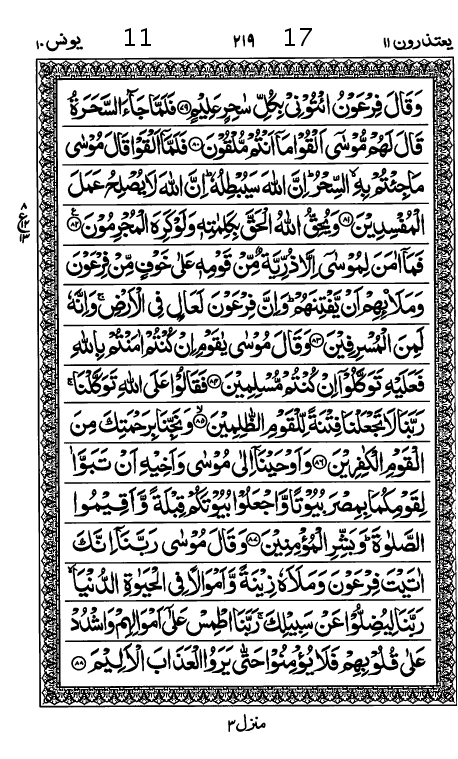 یعتذرون ۱۱ 17 ۲۱۹ 11 یونس ۱۰
وَقَالَ فِرْعَوْنُ ائْتُوْنِیْ بِكُلِّ سٰحِرٍ عَلِیْمٍ ﴿۷۹﴾ فَلَمَّا جَآءَ السَّحَرَةُ
قَالَ لَهُمْ مُّوْسٰۤی اَلْقُوْا مَاۤ اَنْتُمْ مُّلْقُوْنَ ﴿۸۰﴾ فَلَمَّاۤ اَلْقَوْا قَالَ مُوْسٰی
مَا جِئْتُمْ بِهِ ۙ السِّحْرُ ؕ اِنَّ اللّٰهَ سَیُبْطِلُهٗ ؕ اِنَّ اللّٰهَ لَا یُصْلِحُ عَمَلَ
الْمُفْسِدِیْنَ ﴿۸۱﴾ وَیُحِقُّ اللّٰهُ الْحَقَّ بِكَلِمٰتِهٖ وَلَوْ كَرِهَ الْمُجْرِمُوْنَ ﴿۸۲﴾
۸ ع ۱۲ ۱۳
فَمَاۤ اٰمَنَ لِمُوْسٰۤی اِلَّا ذُرِّیَّةٌ مِّنْ قَوْمِهٖ عَلٰی خَوْفٍ مِّنْ فِرْعَوْنَ
وَمَلَا۟ىِٕهِمْ اَنْ یَّفْتِنَهُمْ ؕ وَاِنَّ فِرْعَوْنَ لَعَالٍ فِی الْاَرْضِ ۚ وَاِنَّهٗ
لَمِنَ الْمُسْرِفِیْنَ ﴿۸۳﴾ وَقَالَ مُوْسٰی یٰقَوْمِ اِنْ كُنْتُمْ اٰمَنْتُمْ بِاللّٰهِ
فَعَلَیْهِ تَوَكَّلُوْۤا اِنْ كُنْتُمْ مُّسْلِمِیْنَ ﴿۸۴﴾ فَقَالُوْا عَلَی اللّٰهِ تَوَكَّلْنَا ۚ
رَبَّنَا لَا تَجْعَلْنَا فِتْنَةً لِّلْقَوْمِ الظّٰلِمِیْنَ ﴿۸۵﴾ وَنَجِّنَا بِرَحْمَتِكَ مِنَ
الْقَوْمِ الْكٰفِرِیْنَ ﴿۸۶﴾ وَاَوْحَیْنَاۤ اِلٰی مُوْسٰی وَاَخِیْهِ اَنْ تَبَوَّاٰ
لِقَوْمِكُمَا بِمِصْرَ بُیُوْتًا وَّاجْعَلُوْا بُیُوْتَكُمْ قِبْلَةً وَّاَقِیْمُوا
الصَّلٰوةَ ؕ وَبَشِّرِ الْمُؤْمِنِیْنَ ﴿۸۷﴾ وَقَالَ مُوْسٰی رَبَّنَاۤ اِنَّكَ
اٰتَیْتَ فِرْعَوْنَ وَمَلَاَهٗ زِیْنَةً وَّاَمْوَالًا فِی الْحَیٰوةِ الدُّنْیَا ۙ
رَبَّنَا لِیُضِلُّوْا عَنْ سَبِیْلِكَ ۚ رَبَّنَا اطْمِسْ عَلٰۤی اَمْوَالِهِمْ وَاشْدُدْ
عَلٰی قُلُوْبِهِمْ فَلَا یُؤْمِنُوْا حَتّٰی یَرَوُا الْعَذَابَ الْاَلِیْمَ ﴿۸۸﴾
منزل ۳